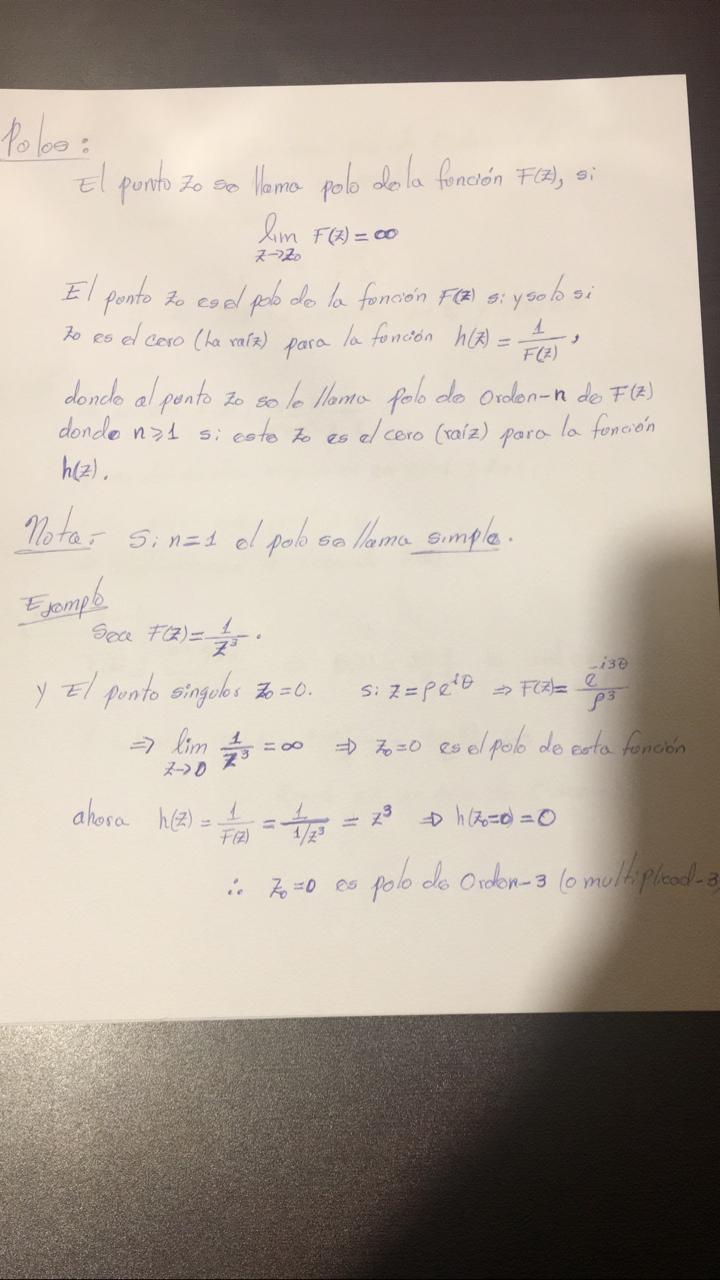 Polos:
El punto Zo se llama polo de la función F(Z), si
lim F(Z) = ∞
Z→Zo
El punto Zo es el polo de la función F(Z) si y solo si
Zo es el cero (La raíz) para la función h(Z) = 1/F(Z),
donde al punto Zo se le llama polo de Orden-n de F(Z)
donde n≥1 si este Zo es el cero (raíz) para la función
h(Z).
Nota- Si n=1 el polo se llama simple.
Ejemplo
Sea F(Z) = 1/Z³.
y El punto singular Zo=0. si Z=ρe^iθ ⇒ F(Z)= e^-i3θ/ρ³
⇒ lim 1/Z³ = ∞ ⇒ Zo=0 es el polo de esta función
Z→0
ahora h(Z) = 1/F(Z) = 1/1/Z³ = Z³ ⇒ h(Zo=0)=0
∴ Zo=0 es polo de Orden-3 (o multiplicad-3